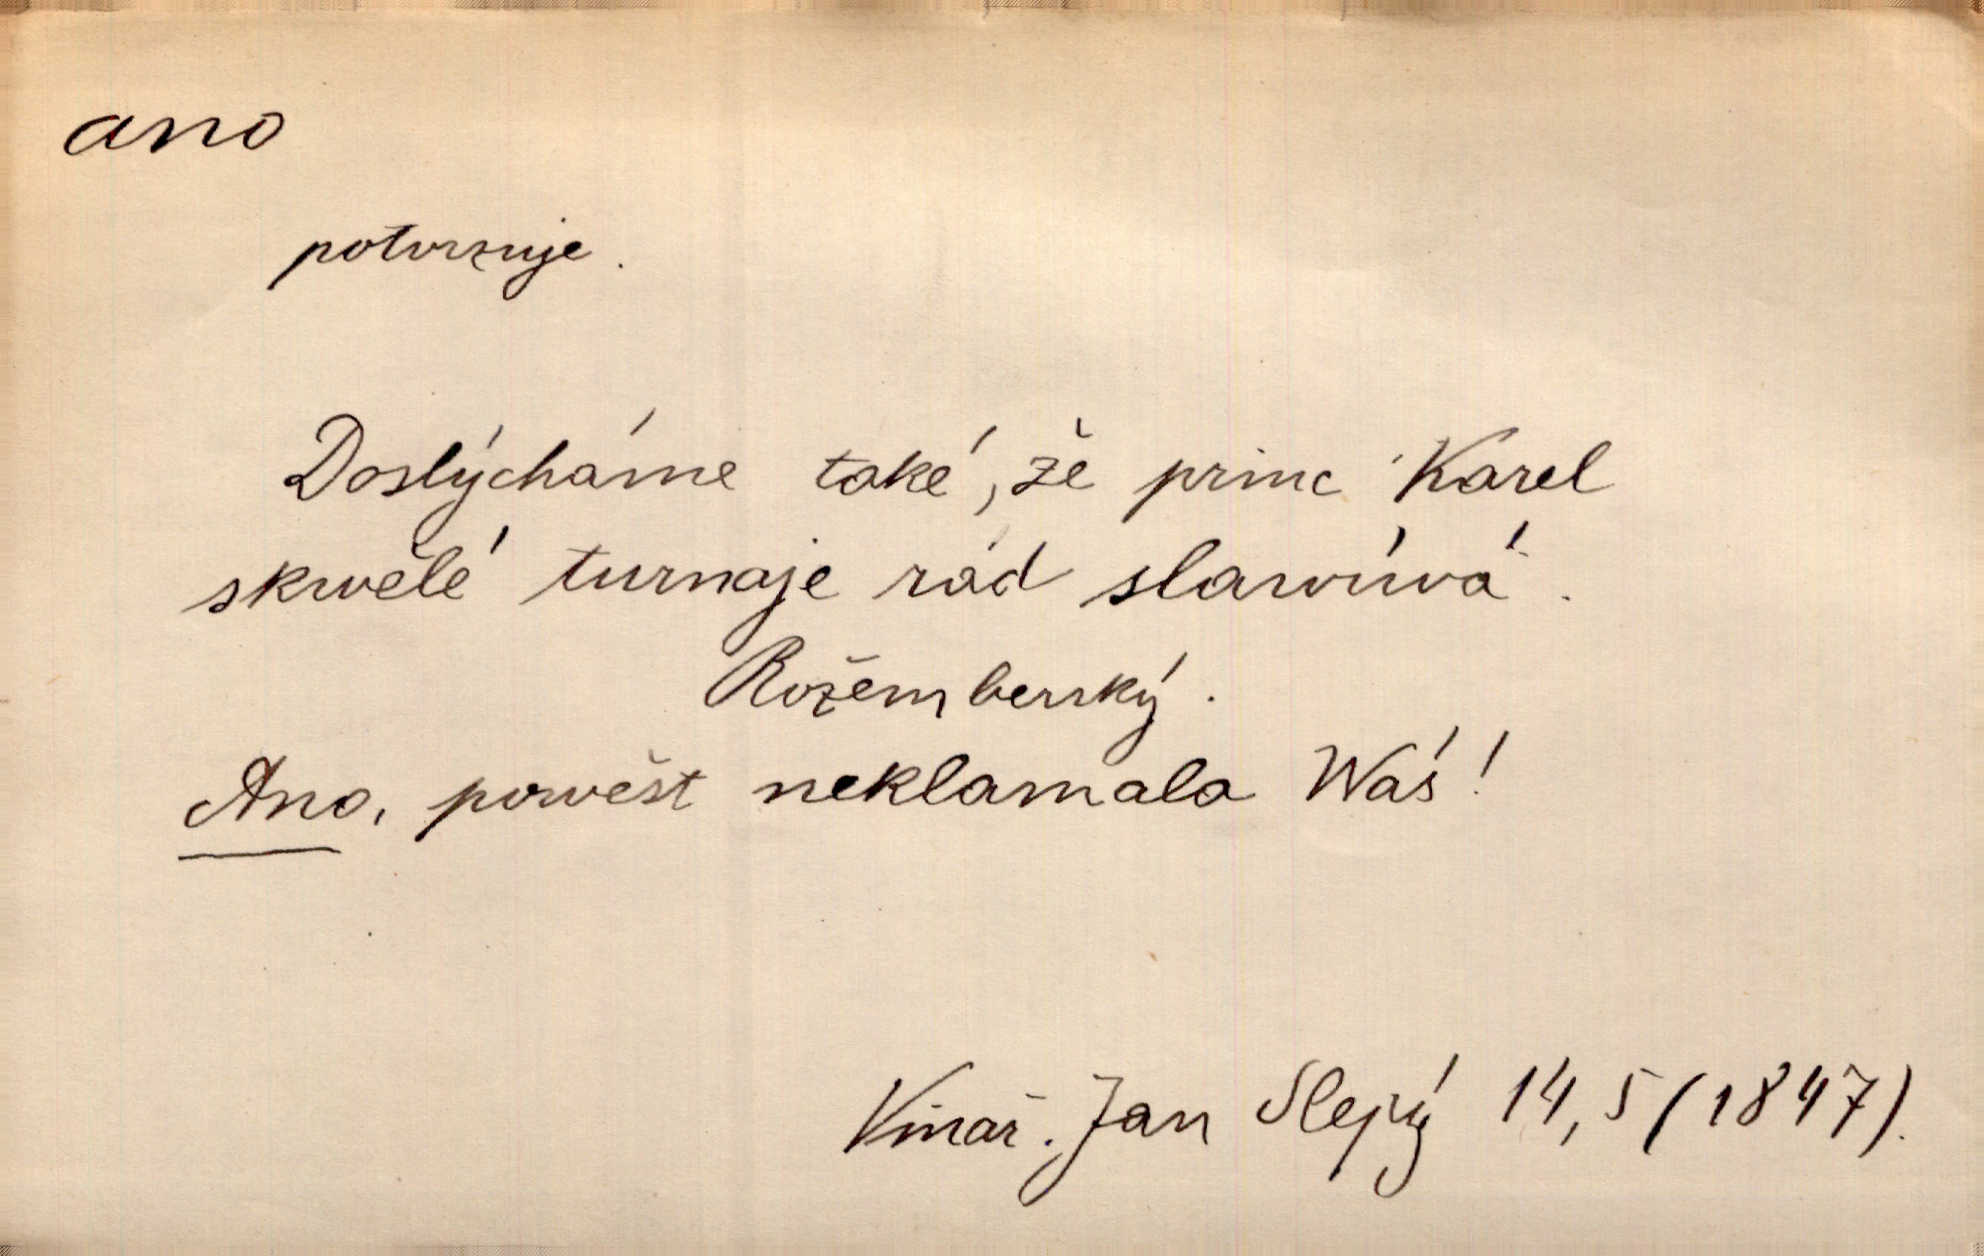 ano
potvrzuje.
Doslýcháme také, že princ Karel
skwělé turnaje rád slawívá.
Rožemberský.
Ano, powěst neklamala Wás!
Vinař. Jan Slepý 14, 5 (1847).